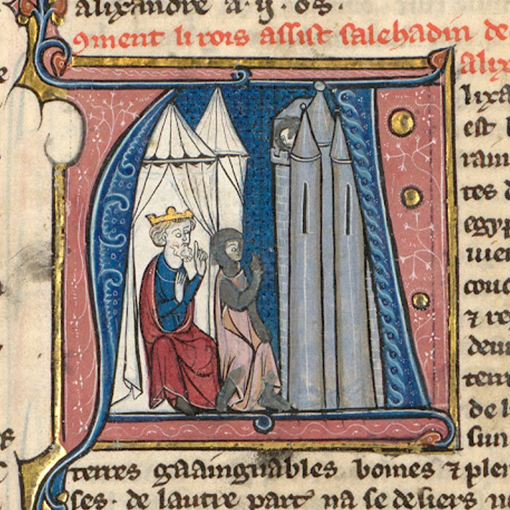 alixandre a .ij. os.
9ment li rois assist salehadin de
alix
lixa
est l
ram
tes d
egyp
viet
couc
⁊ re
deui
terre
de l
sur
terres gaaingnables boines ⁊ plen
ses. de lautre part na se desiers n